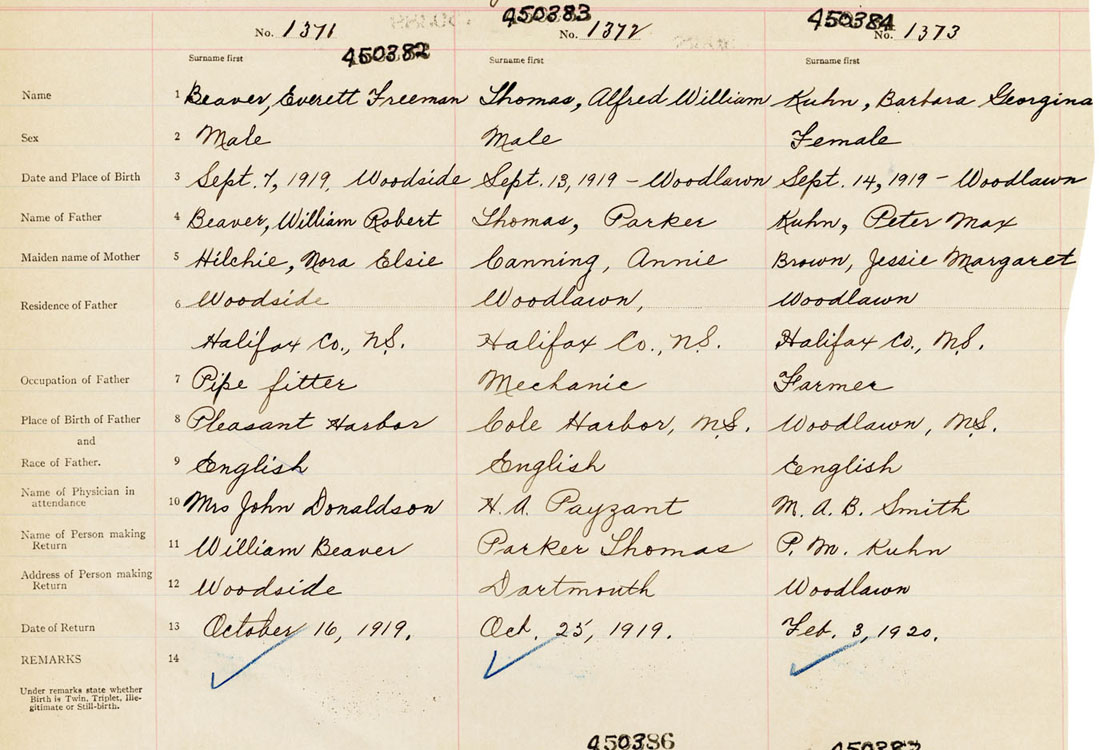 450383 450384
No. 1371 No. 1372 No. 1373
450382
Surname first Surname first Surname first
Name 1 Beaver, Everett Freeman Thomas, Alfred William Kuhn, Barbara Georgina
Sex 2 Male Male Female
Date and Place of Birth 3 Sept. 7, 1919, Woodside Sept. 13, 1919 - Woodlawn Sept. 14, 1919 - Woodlawn
Name of Father 4 Beaver, William Robert Thomas, Parker Kuhn, Peter Max
Maiden name of Mother 5 Hilchie, Nora Elsie Canning, Annie Brown, Jessie Margaret
Residence of Father 6 Woodside Woodlawn, Woodlawn
Halifax Co., N.S. Halifax Co., N.S. Halifax Co., N.S.
Occupation of Father 7 Pipe fitter Mechanic Farmer
Place of Birth of Father 8 Pleasant Harbor Cole Harbor, N.S. Woodlawn, N.S.
and
Race of Father. 9 English English English
Name of Physician in
attendance 10 Mrs John Donaldson H. A. Payzant M. A. B. Smith
Name of Person making
Return 11 William Beaver Parker Thomas P. M. Kuhn
Address of Person making
Return 12 Woodside Dartmouth Woodlawn
Date of Return 13 October 16, 1919. Oct. 25, 1919. Feb. 3, 1920.
REMARKS 14
Under remarks state whether
Birth is Twin, Triplet, Ille-
gitimate or Still-birth.
450386